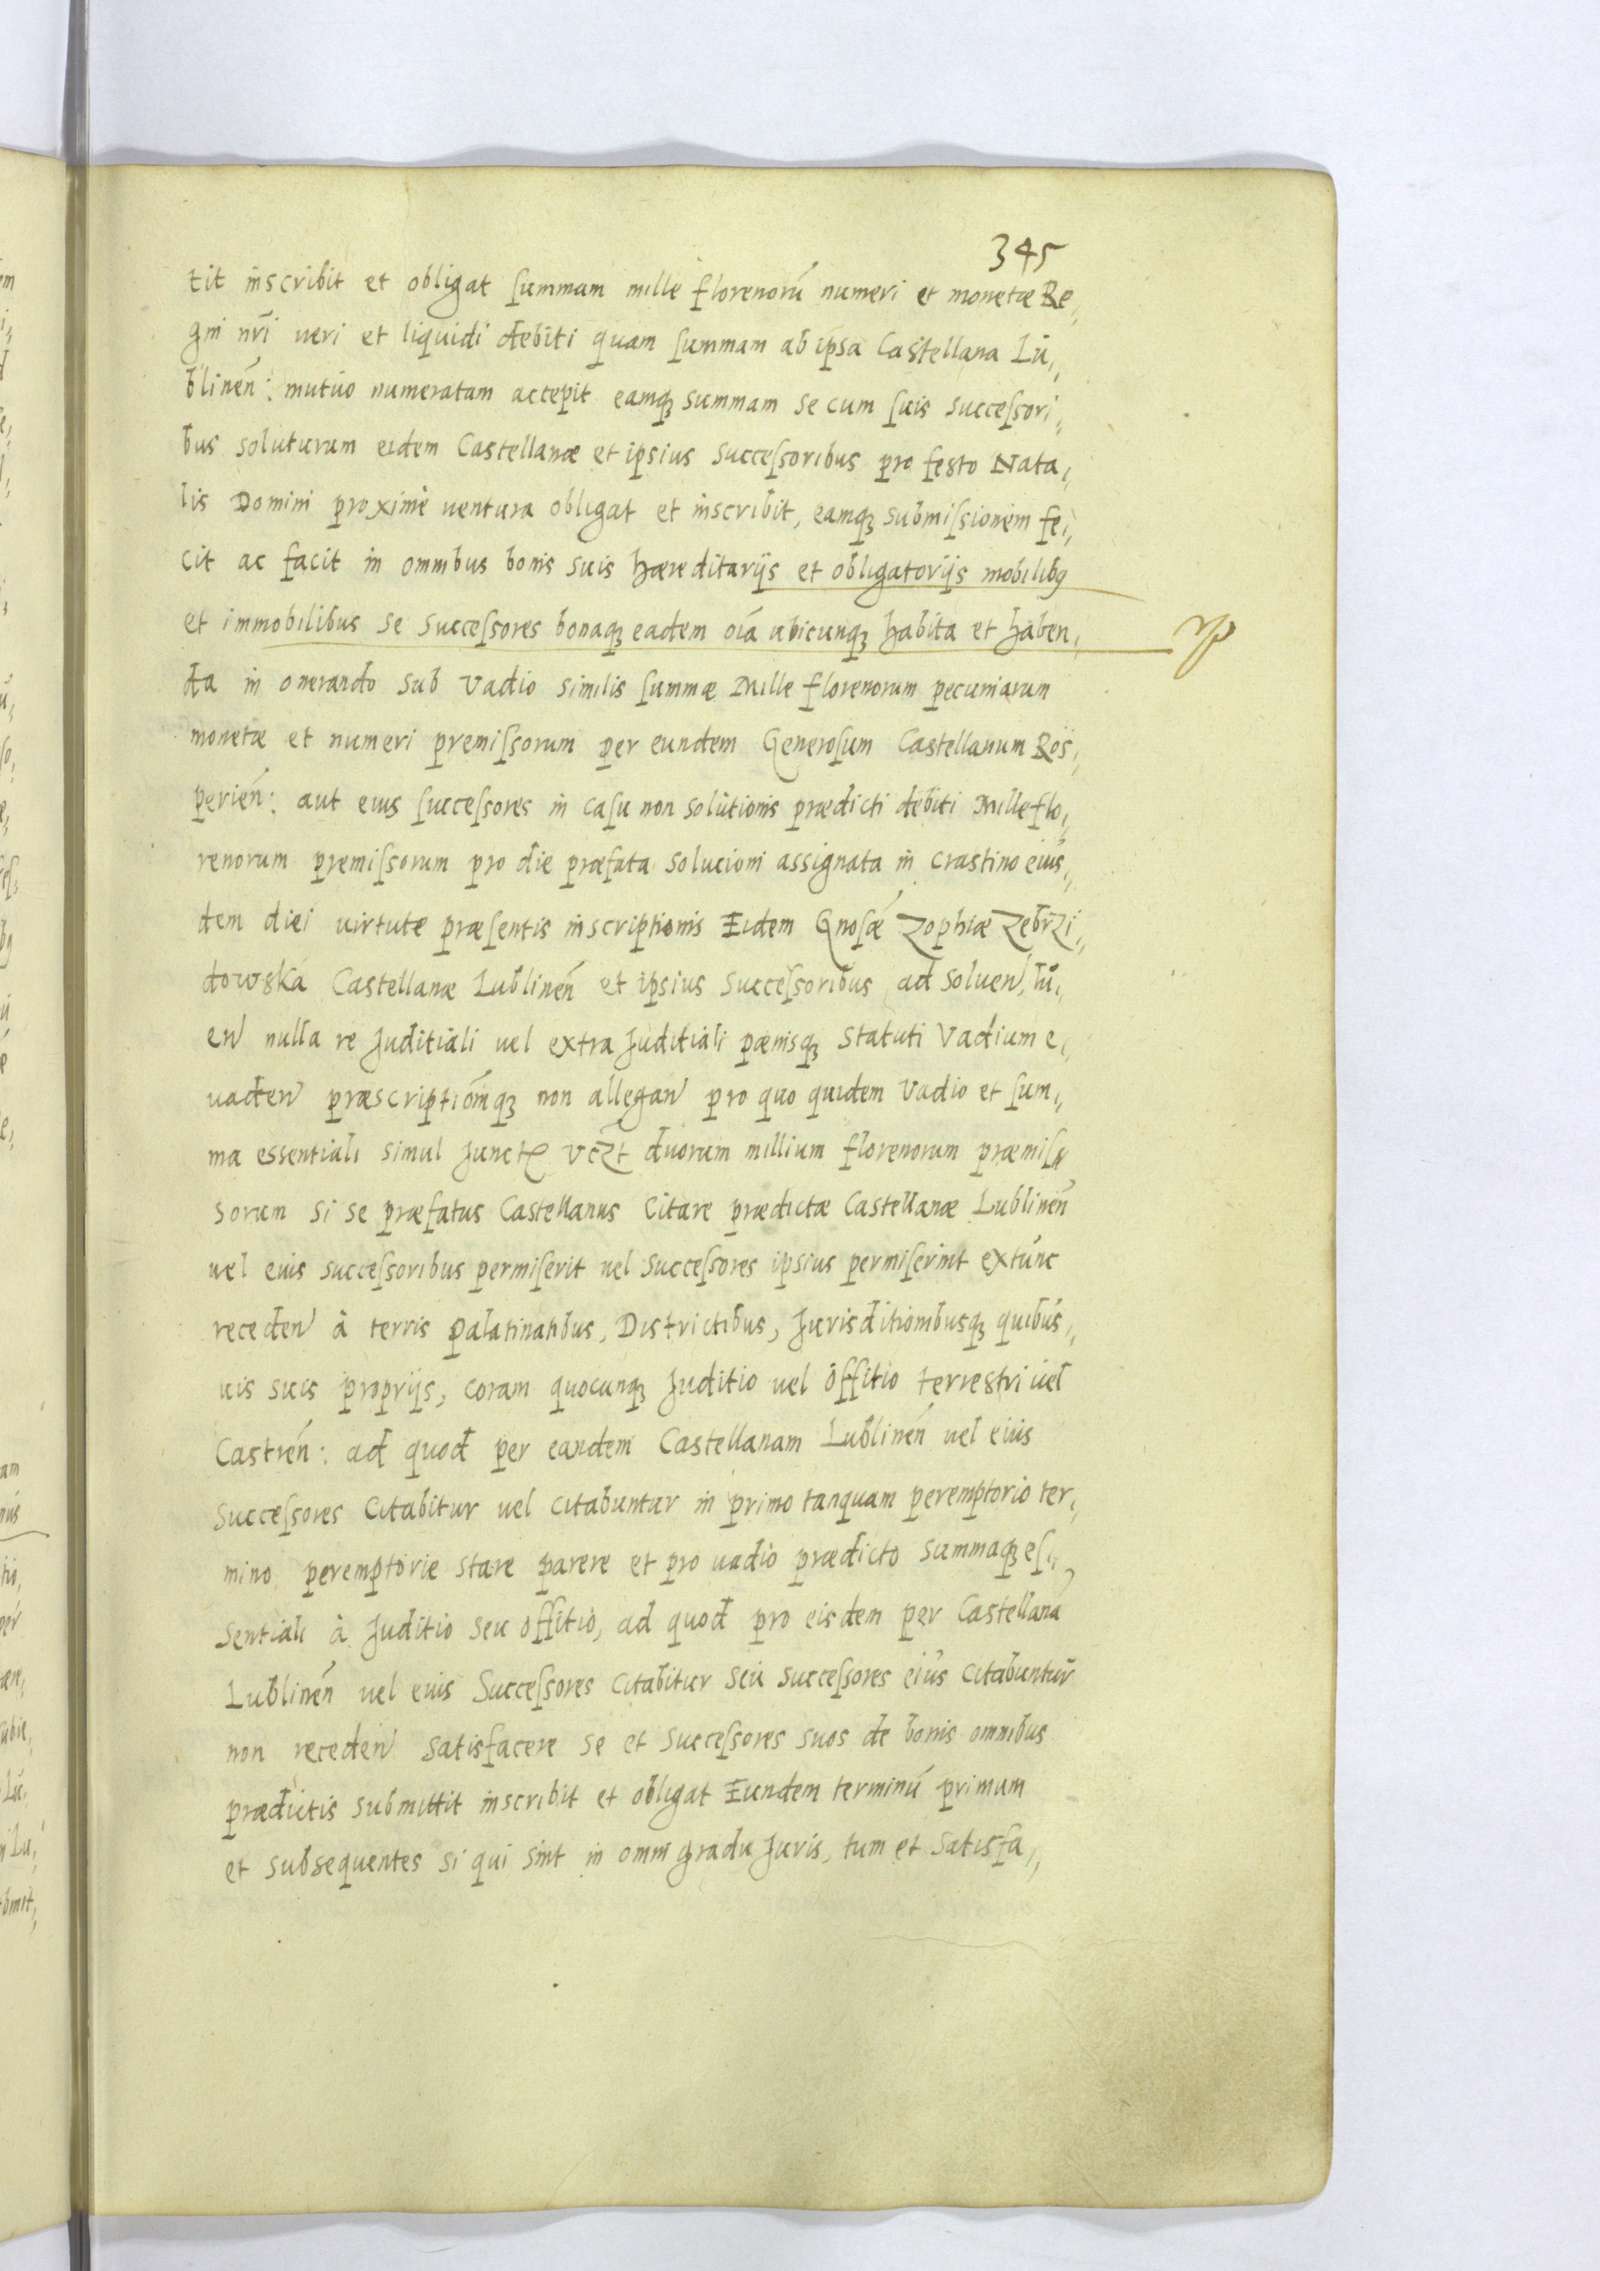 345
tit inscribit et obligat summam mille florenorū numeri et monetæ Re,,
gni nrī veri et liquidi debiti quam summam ab ipsa Castellana Lu,,
blinēn: mutuo numeratam accepit eamqꝫ summam se cum suis successori,,
bus soluturum eidem Castellanæ et ipsius successoribus pro festo Nata,,
lis Domini proximè ventura obligat et inscribit, eamqꝫ submissionem fe,,
cit ac facit in omnibus bonis suis hæreditarijs et obligatorijs mobilibꝯ
et immobilibus se successores bonaqꝫ eadem oīa ubicunqꝫ habita et haben,,
da in onerando sub vadio similis summæ Mille florenorum pecuniarum
monetæ et numeri premissorum per eundem Generosum Castellanum Ros,,
periēn: aut eius successores in casu non solutionis prædicti debiti Mille flo,,
renorum premissorum pro die præfata solucioni assignata in crastino eius,,
dem diei virtute præsentis inscriptionis Eidem Gnosæ Zophiæ Zebrzi,,
dowska Castellanæ Lublinēn et ipsius successoribus ad soluen, lu,,
en nulla re Juditiali vel extra Juditiali pænisqꝫ statuti Vadium e,,
vaden præscriptiōmqꝫ non allegan pro quo quidem Vadio et sum,,
ma essentiali simul Junctꝭ vczt duorum millium florenorum præmis,,
sorum si se præfatus Castellanus Citare prædictæ Castellanæ Lublinēn
vel eius successoribus permiserit vel successores ipsius permiserint extunc
receden à terris Palatinatibus, Districtibus, Jurisditionibusqꝫ quibus,,
vis suis proprijs, coram quocunqꝫ Juditio vel offitio terrestri vel
Castrēn: ad quod per eandem Castellanam Lublinēn vel eius
successores Citabitur vel citabuntur in primo tanquam peremptorio ter,,
mino peremptorie stare parere et pro vadio prædicto summaqꝫ es,,
sentiali à Juditio seu offitio, ad quod pro eisdem per Castellanā
Lublinēn vel eius Successores citabitur seu successores eius citabuntur
non receden satisfacere se et successores suos de bonis omnibus
prædictis submittit inscribit et obligat Eundem terminū primum
et subsequentes si qui sint in omni gradu Juris, tum et satisfa,,